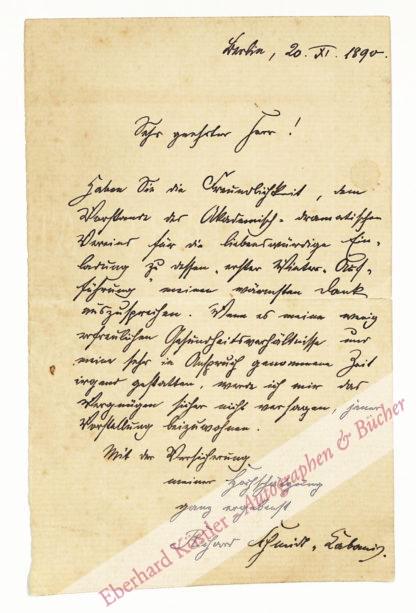 Berlin, 20. XI. 1890.
Sehr geehrter Herr!
Haben Sie die Freundlichkeit, dem
Vorstande des Akademisch-dramatischen
Vereins für die liebenswürdige Ein-
ladung zu dessen „erster Winter-Auf-
führung" meinen wärmsten Dank
auszusprechen. Wenn es meine wenig
erfreulichen Gesundheitsverhältnisse und
meine sehr in Anspruch genommene Zeit
irgend gestatten, werde ich mir das
Vergnügen sicher nicht versagen, jener
Vorstellung beizuwohnen.
Mit der Versicherung
meiner Hochschätzung
ganz ergebenst
Richard Schmidt-Cabanis.
Eberhard Köstler - Autographen & Bücher